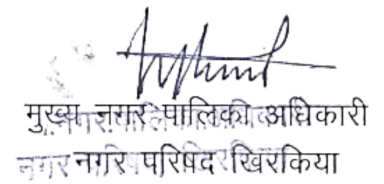 मुख्य नगर पालिका अधिकारी
नगर नगर परिषद खिरकिया